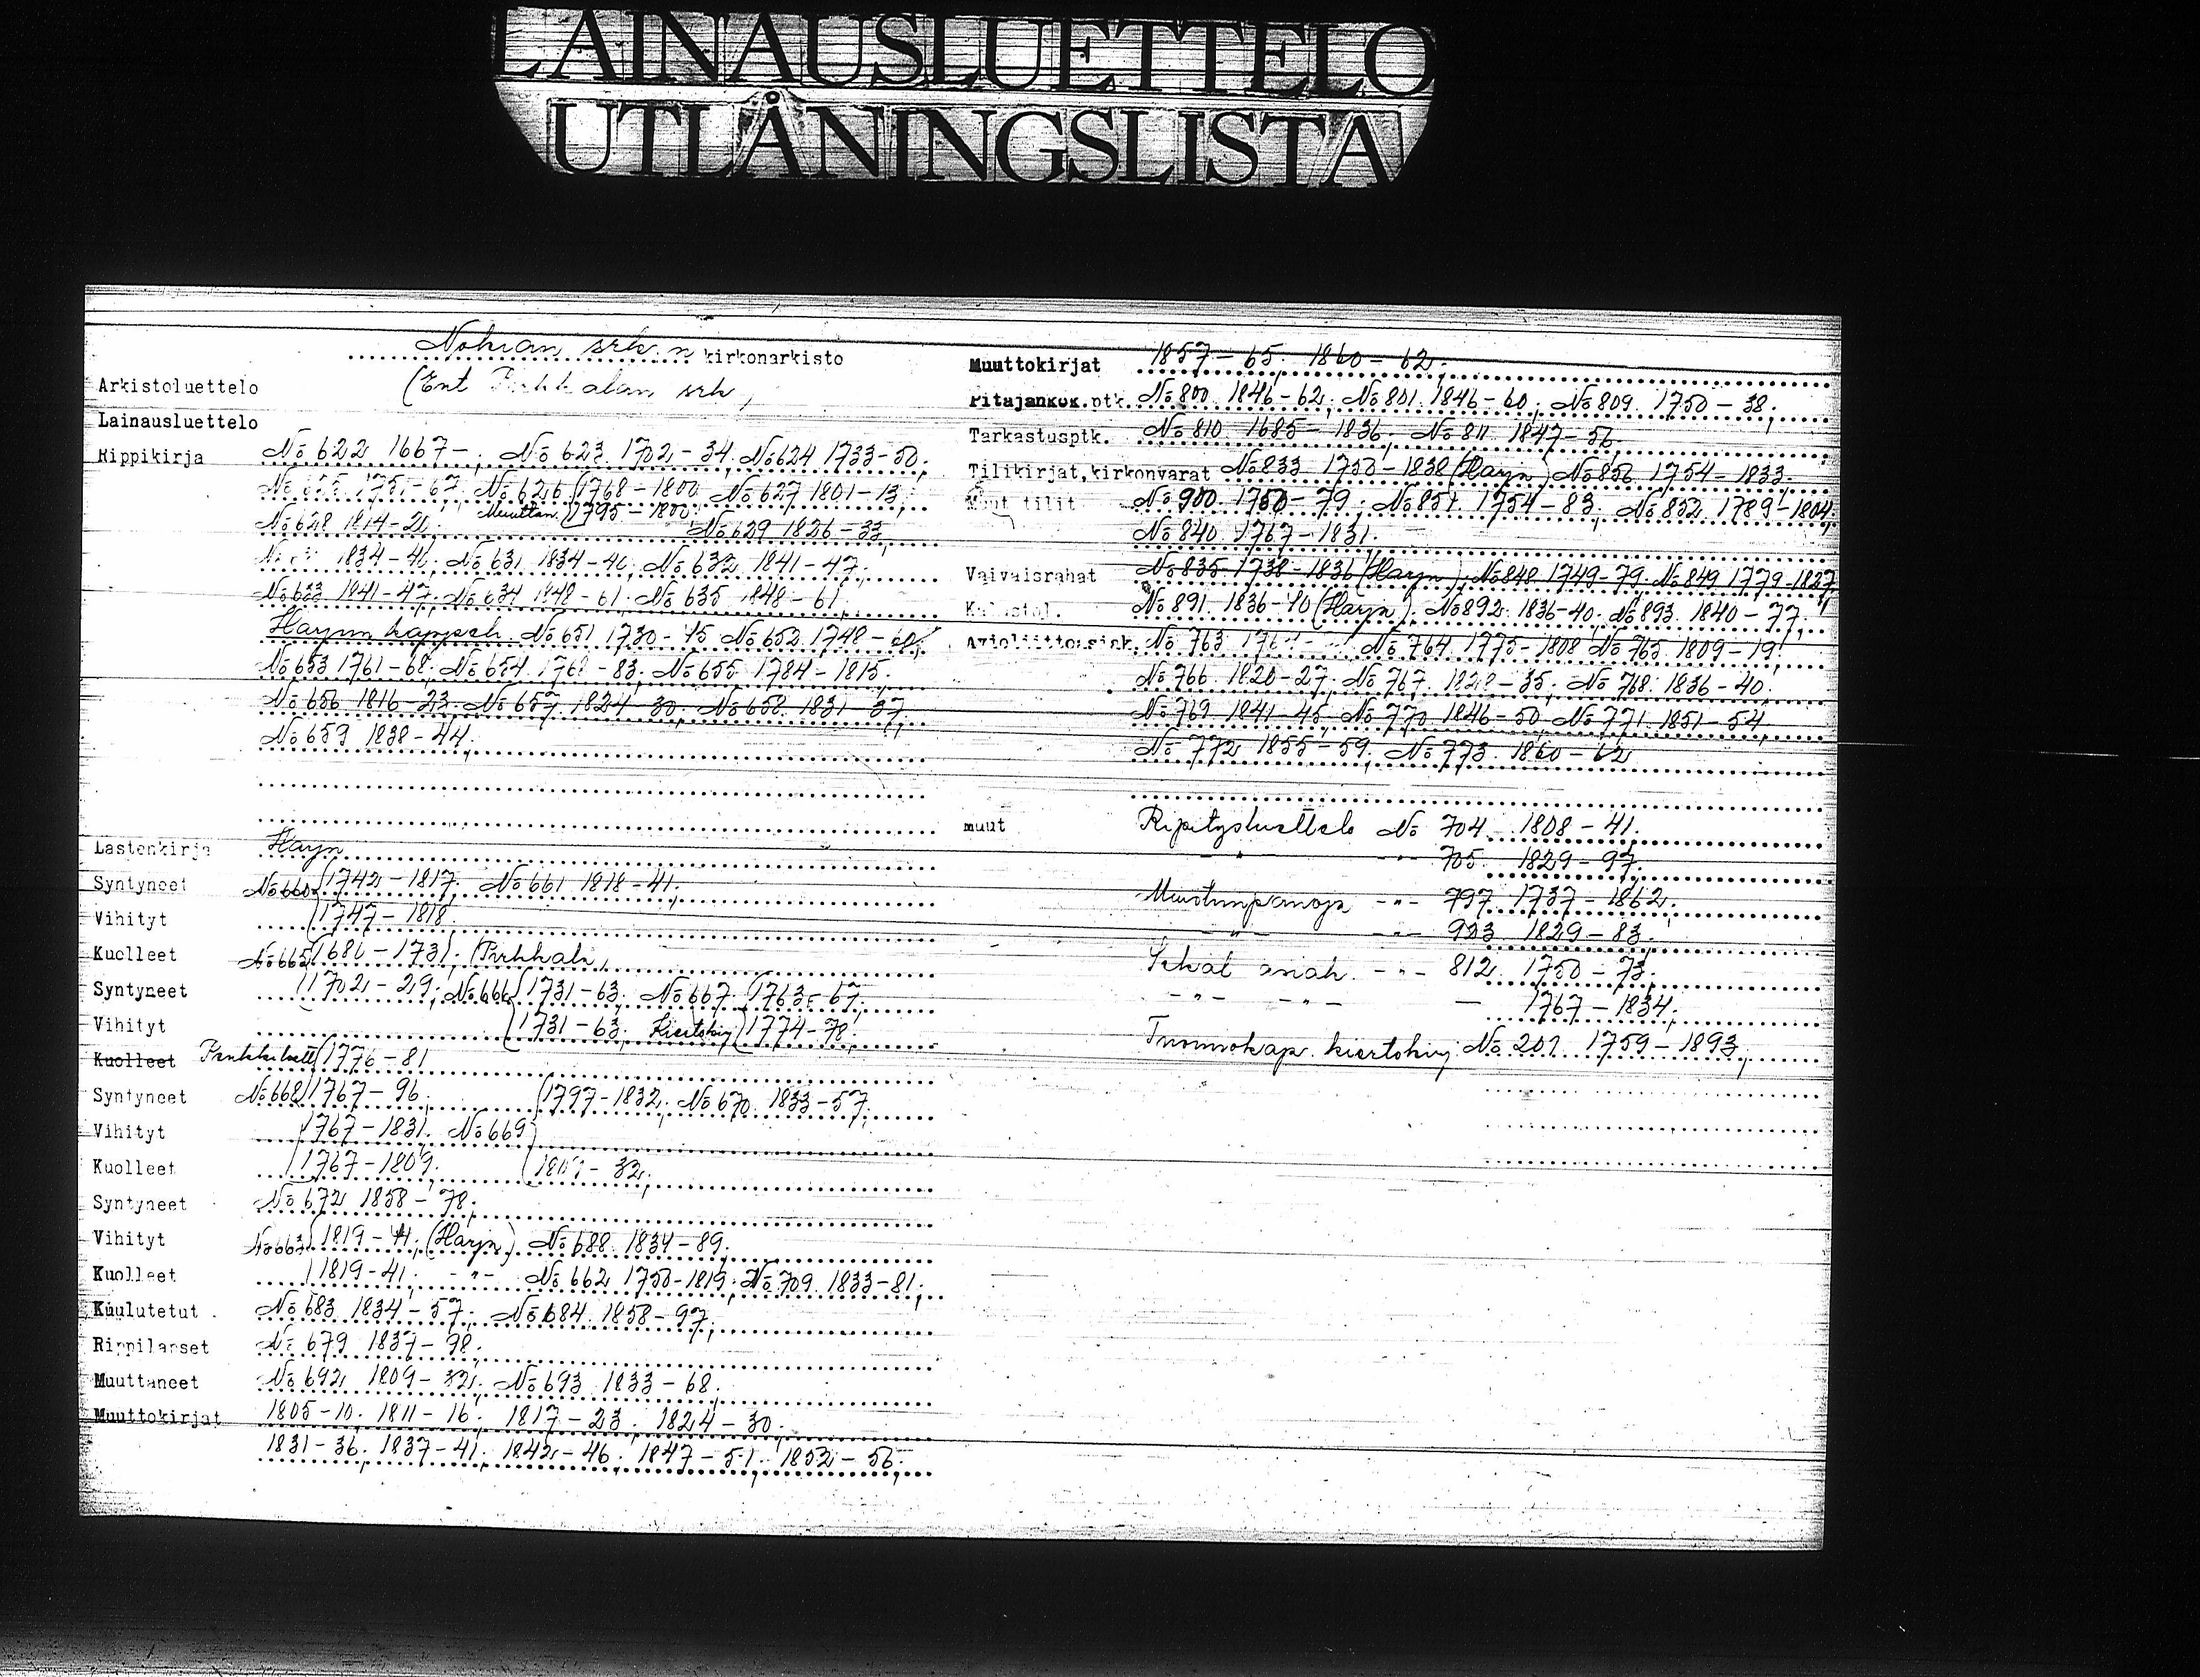 LAINAUSLUETTELO
UTLÅNINGSLISTA
Nokian srk n kirkonarkisto
Arkistoluettelo (Ent Pirkkalan srk,
Lainausluettelo
Rippikirja No 622 1667-; No 623 1702-34; No 624 1733-50;
No 626 (1768-1800 No 627 1801-13;
No 628 1814-21; Muuttan. (1795-1800 No 629 1826-33
1834-40; No 631 1834-40; No 632 1841-47;
No 633 1841-47; No 634 1848-61; No 635 1848-61
Harjun kappseh. No 651 1730-45 No 652 1748-60;
No 653 1761-68; No 654 1768-83; No 655 1784-1815;
No 656 1816-23; No 657 1824-30; No 658 1831-37,
No 659 1838-44;
Lastenkirja Harju
Syntyneet No 660 (1742-1817; No 661 1818-41;
Vihityt (1747-1818.
Kuolleet No 665 (1686-1731; (Pirkkala,
Syntyneet (1702-29; No 666 (1731-63; No 667 (1763-67;
Vihityt (1731-63; Kiertokirj (1774-78;
Kuolleet (1776-81
Syntyneet No 668 (1767-96; (1797-1832; No 670 1833-57;
Vihityt (1767-1831; No 669
Kuolleet (1767-1809; -32;
Syntyneet No 672 1858-78;
Vihityt No 663 (1819-41; (Harju) No 688 1834-89;
Kuolleet (1819-41; -"- No 662 1750-1819; No 709 1833-81;
Kuulutetut No 683 1834-57; No 684 1858-97;
Rippilapset No 679 1837-98;
Muuttaneet No 692 1809-32; No 693 1833-68;
Muuttokirjat 1805-10; 1811-16; 1817-23; 1824-30;
1831-36; 1837-41; 1842-46; 1847-51; 1852-56;
Muuttokirjat 1857-65; 1860-62;
Pitäjänkok.ptk. No 800 1846-62; No 801 1846-60; No 809 1750-38;
Tarkastusptk. No 810 1685-1836; No 811 1847-56
Tilikirjat, kirkonvarat No 833 1750-1838 (Harju) No 856 1754-1833
Muut tilit No 900 1750-79; No 851 1754-83; No 852 1789-1804;
No 840 1767-1831.
Vaivaisrahat No 835 1738-1836 (Harju); No 848 1749-79; No 849 1779-1827
No 891 1836-40 (Harju); No 892 1836-40; No 893 1840-77;
Avioliittoasiak. No 763 No 764 1775-1808 No 765 1809-19;
No 766 1820-27; No 767 1828-35; No 768 1836-40;
No 769 1841-45; No 770 1846-50 No 771 1851-54
No 772 1855-59; No 773 1860-62
muut Ripitysluettelo No 704 1808-41;
-"- -"- 705 1829-97;
Muistiinpanoja -"- 797 1737-1862;
-"- -"- 923 1829-83;
Sekal asiak. -"- 812 1750-73;
-"- -"- - 1767-1834;
Tuomiokap. kiertokirj No 201 1759-1893;